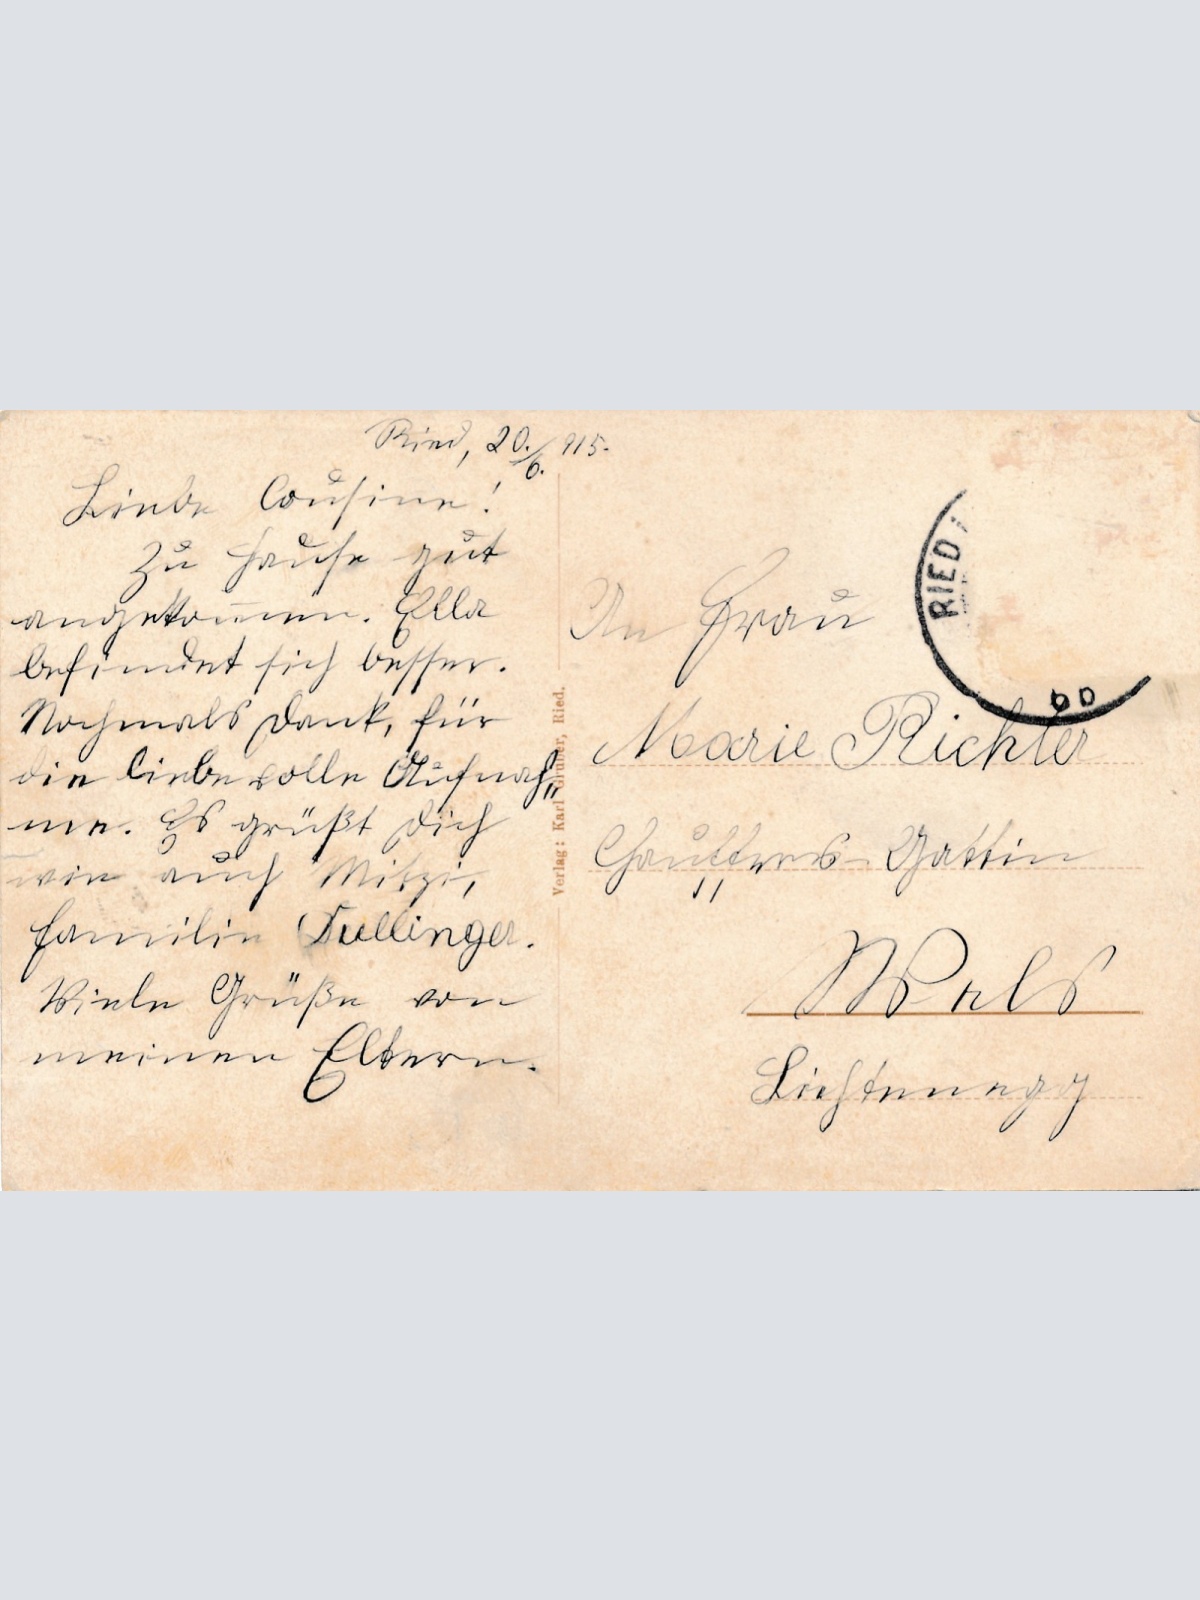 Ried, 20./6. 915.
Liebe Cousine!
Zu Hause gut
angekom̅en. Ella
befindet sich besser.
Nochmals Dank, für
die liebevolle Aufnah„
me. Es grüßt Dich
wie auch Mitzi,
Familie Tullinger.
Viele Grüße von
meinen Eltern.
Verlag: Karl Gruber, Ried.
RIED i
An Frau
Marie Richter
Chauffeurs-Gattin
Wels
Lichtenegg